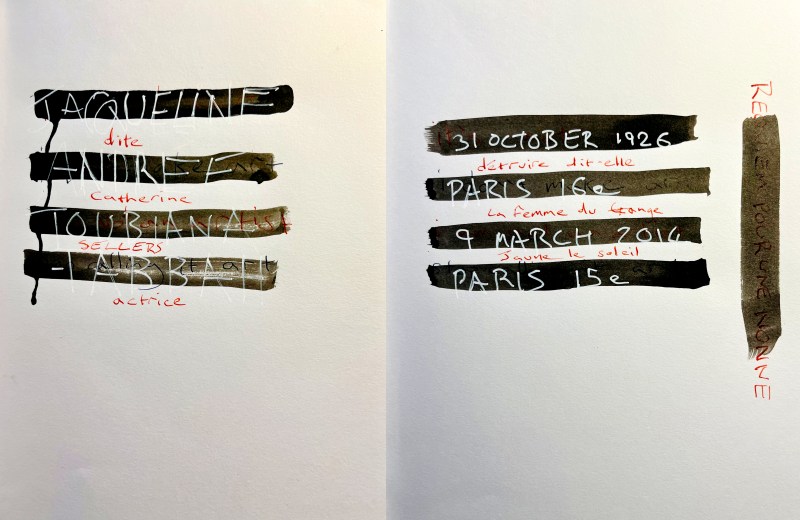 JACQUELINE
dite
ANDREE
Catherine
TOUBIANA
SELLERS
-TABBAH
actrice
31 OCTOBER 1926
détruire dit-elle
PARIS 16e
La Femme du Gange
9 MARCH 2014
Jaune le soleil
PARIS 15e
REQUIEM POUR UNE NONNE